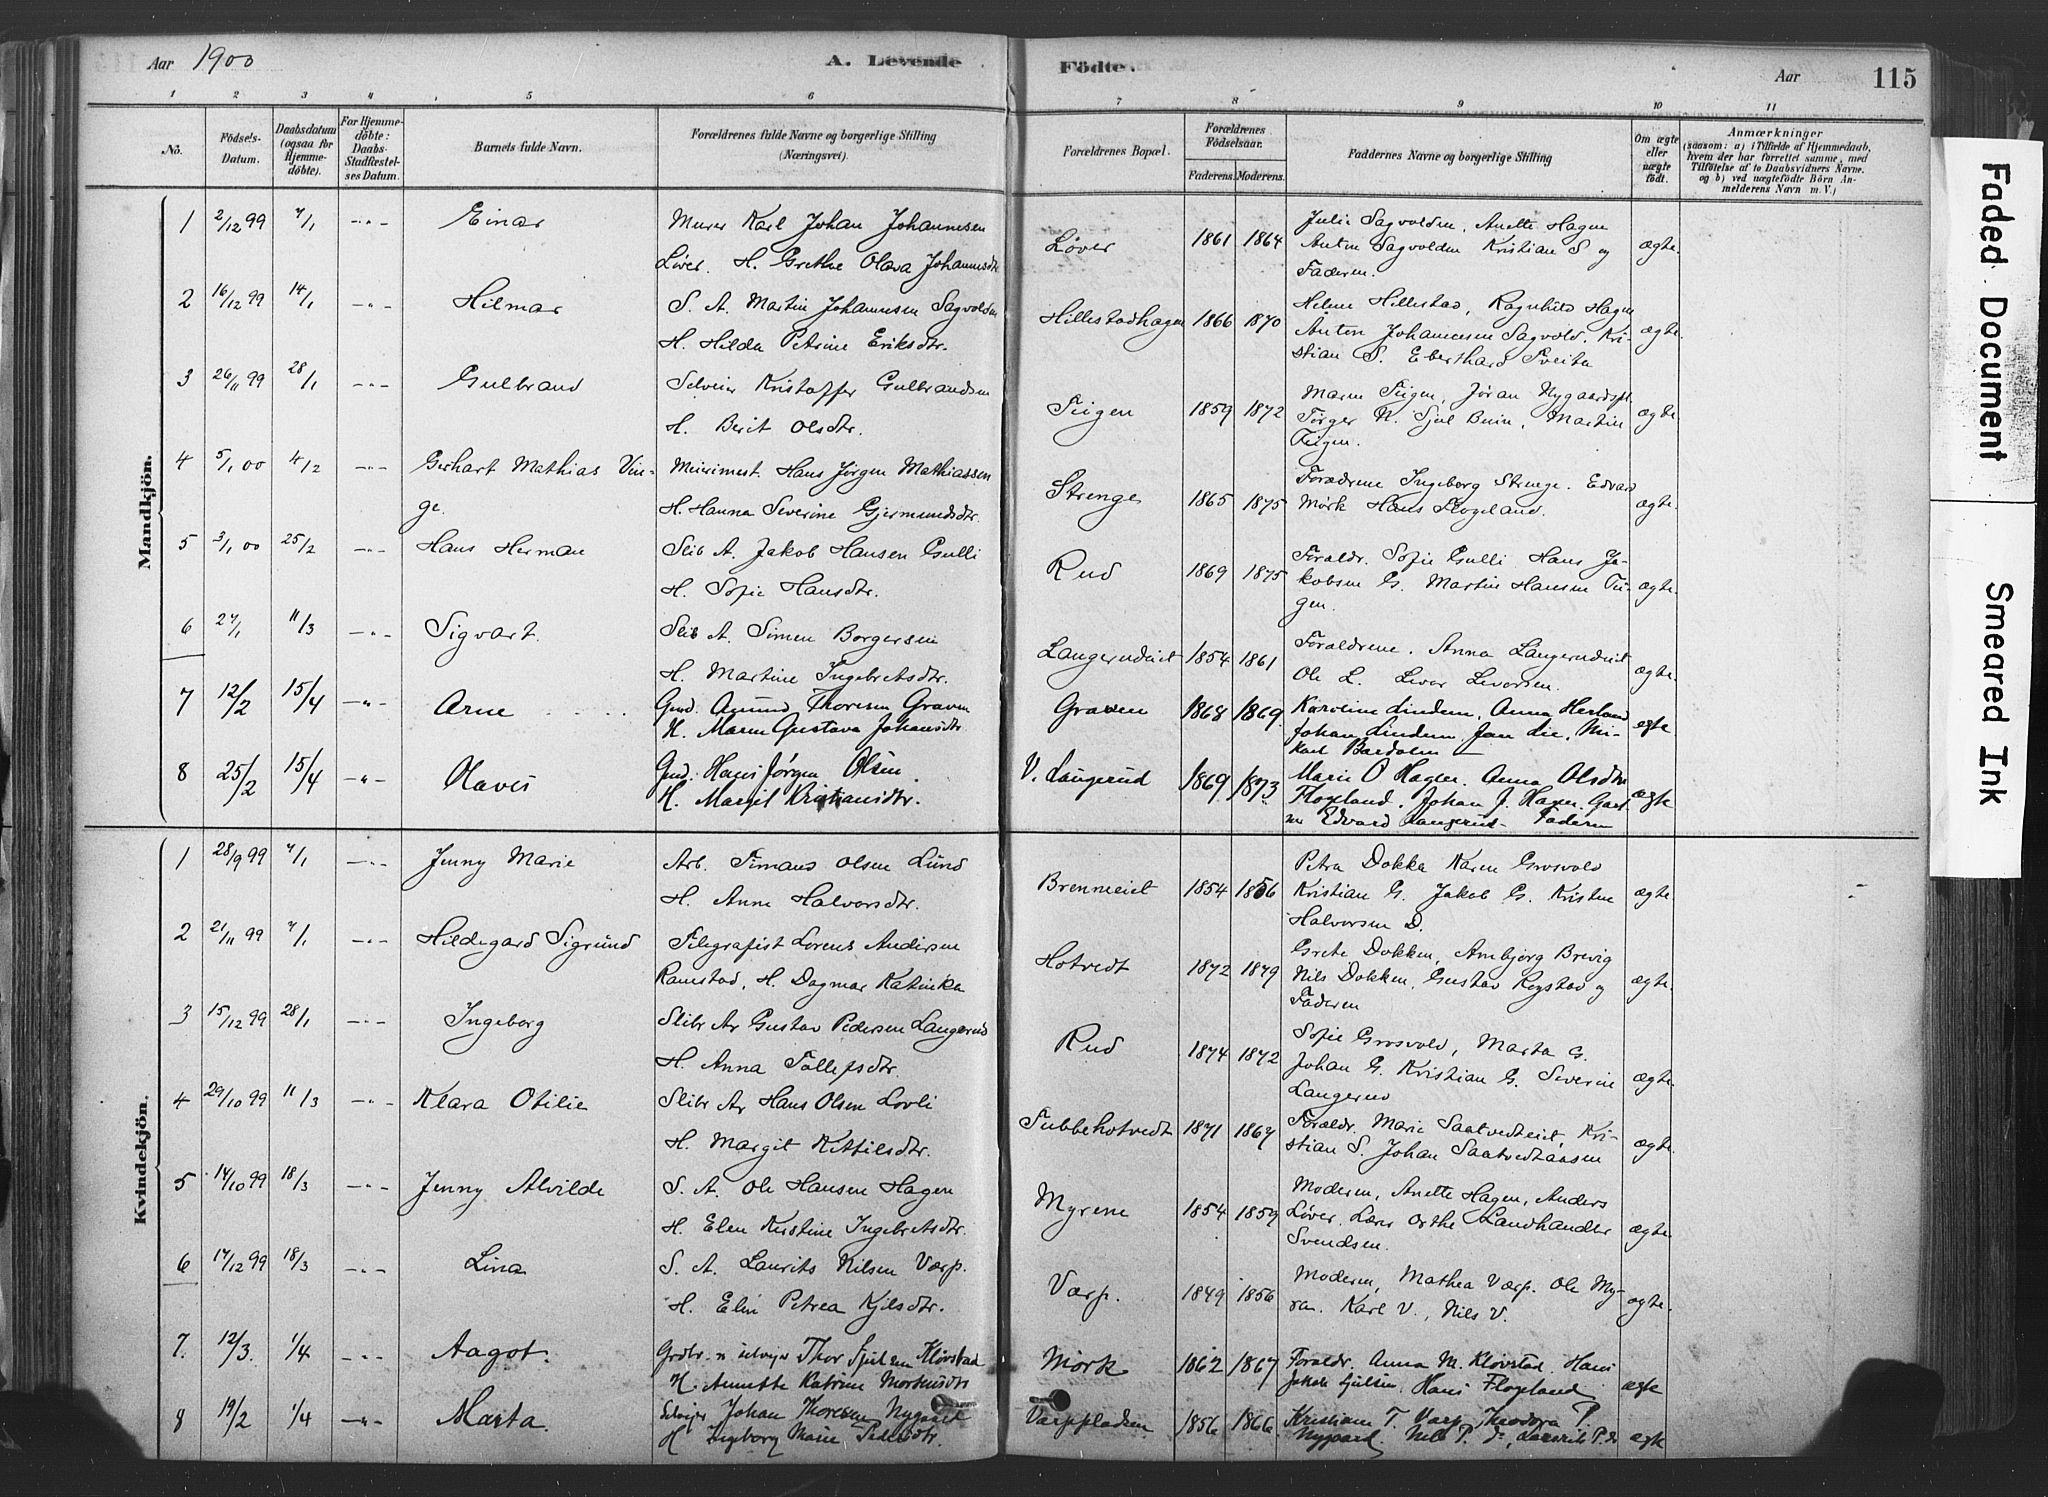 Aar 1900
A. Levende
Födte.
Aar
115
1 2 3 4 5 6 7 8 9 10 11
No.
Födsels-Datum.
Daabsdatum (ogsaa for Hjemmedöbte).
For Hjemmedöbte: Daabs-Stadfæstelses Datum.
Barnets fulde Navn.
Forældrenes fulde Navne og borgerlige Stilling (Næringsvei).
Forældrenes Bopæl.
Forældrenes Födselsaar.
Faderens. Moderens.
Faddernes Navne og borgerlige Stilling
Om ægte eller uægte födt.
Anmærkninger
(saasom: a) i Tilfælde af Hjemmedaab, hvem der har forrettet samme, med Tilföielse af to Daabsvidners Navne. og b) ved uægtefödte Börn Anmelderens Navn m. V.)
Mandkjön.
1 2/12 99 7/1 -"- Einar
Murer Karl Johan Johannesen
Løver. H. Grethe Olava Johannsdtr
Løver 1861 1864
Julie Sagvolden, Anette Hagen
Anton Sagvolden Kristian S og
Faderen. ægte.
2 16/12 99 14/1 -"- Hilmar
S. A. Martin Johannesen Sagvolden
H. Hilda Petrine Eriksdtr.
Hillestadhagen 1866 1870
Helene Hillestad, Ragnhild Hagen
Anton Johannesen Sagvold, Kri-
stian S. Eberthard Tveita ægte.
3 26/11 99 28/1 -"- Gulbrand
Selveier Kristoffer Gulbrandsen
H. Berit Olsdtr.
Teigen 1859 1872
Maren Teigen, Jøran Nygaardspl.
Torger N. Sjul Buin, Martin
Teigen. ægte.
4 5/1 00 4/2 -"- Gerhart Mathias Vin-
ge.
Minemest. Hans Jørgen Mathiassen
H. Hanna Severine Gjermundsdtr.
Strenge 1865 1875
Forældrene Ingeborg Strenge. Edvard
Mørk Hans Flogeland. ægte.
5 3/1 00 25/2 -"- Hans Herman
Slib A. Jakob Hansen Gulli
H. Sofie Hansdtr.
Rud 1869 1875
Foraldr. Sofie Gulli Hans Ja-
kobsen G. Martin Hansen Tei-
gen. ægte.
6 27/1 11/3 -"- Sigvart.
Slib A. Simen Borgersen
H. Martine Ingebretsdtr.
Langerudeiet 1854 1861
Foraldrene. Anna Langerudeiet
Ole L. Levor Levorsen. ægte.
7 12/2 15/4 -"- Arne
Grd. Amund Thoresen Graven
H. Maren Gustava Johansdtr.
Graven 1868 1869
Karoline Lindem, Anna Herland
Johan Lindem Jan Lie, Mi-
kael Bardolen ægte
8 25/2 15/4 -"- Olaves
Grd. Hans Jørgen Olsen.
H. Margit Kristiansdtr.
V. Langerud 1869 1873
Marie O Hagen. Anna Olsdtr
Flogeland. Johan J. Hagen. Gaard-
m Edvard Langerud. Faderen ægte
Kvindekjön.
1 28/9 99 7/1 -"- Jenny Marie
Arb. Simand Olsen Lund
H. Anne Halvorsdtr.
Brenneeiet 1854 1856
Petra Dokka Karen Grosvold
Kristian G. Jakob G. Kristen
Halvorsen D. ægte.
2 21/11 99 7/1 -"- Hildegard Sigrund
Telegrafist Lorens Andersen
Ramstad, H. Dagmar Katinka
Hotvedt 1872 1879
Grete Dokken, Arnbjørg Brevig
Nils Dokken, Gustav Rogstad og
Faderen ægte.
3 15/12 99 28/1 -"- Ingeborg
Slibr Ar Gustav Pedersen Langerud
H. Anna Tollefsdtr.
Rud 1874 1872
Sofie Grosvold, Marta G.
Johan G. Kristian G. Severine
Langerud ægte.
4 29/10 99 11/3 -"- Klara Otilie
Slibr Ar Hans Olsen Lovli
H. Margit Kittilsdtr.
Tubbehotvedt 1871 1867
Foraldr. Marie Saatvedteiet, Kri-
stian S. Johan Saatvedtaasen ægte.
5 14/10 99 18/3 -"- Jenny Alvilde
S. A. Ole Hansen Hagen
H. Elen Kirstine Ingebretsdtr.
Myrene 1854 1859
Moderen, Anette Hagen, Anders
Løver. Lærer Orthe Landhandler
Svendsen. ægte.
6 17/12 99 18/3 -"- Lina
S. A. Laurits Nilsen Værp.
H. Elen Petrea Kjilsdtr.
Værp. 1849 1856
Moderen, Mathea Værp. Ole My-
ran. Karl V., Nils V. ægte.
7. 12/3. 1/4 -"- Aagot.
Grdbr. & selvejer Thor Sjulsen Kløvstad
H. Annette Katrine Mortensdtr
Mørk 1862 1867
Foraldr. Anna M. Kløvstad, Hans
Jakob Sjulsen, Hans Flogeland ægte
8 19/2 1/4 -"- Marta.
Selvejer Johan Thoresen Nygaard
H Ingeborg Marie Pedersdtr.
Værppladsen 1856 1866
Kristiane T. Værp Theodora P.
Nygaard, Nils P. do, Laurits P. do ægte
Faded Document
Smeared Ink